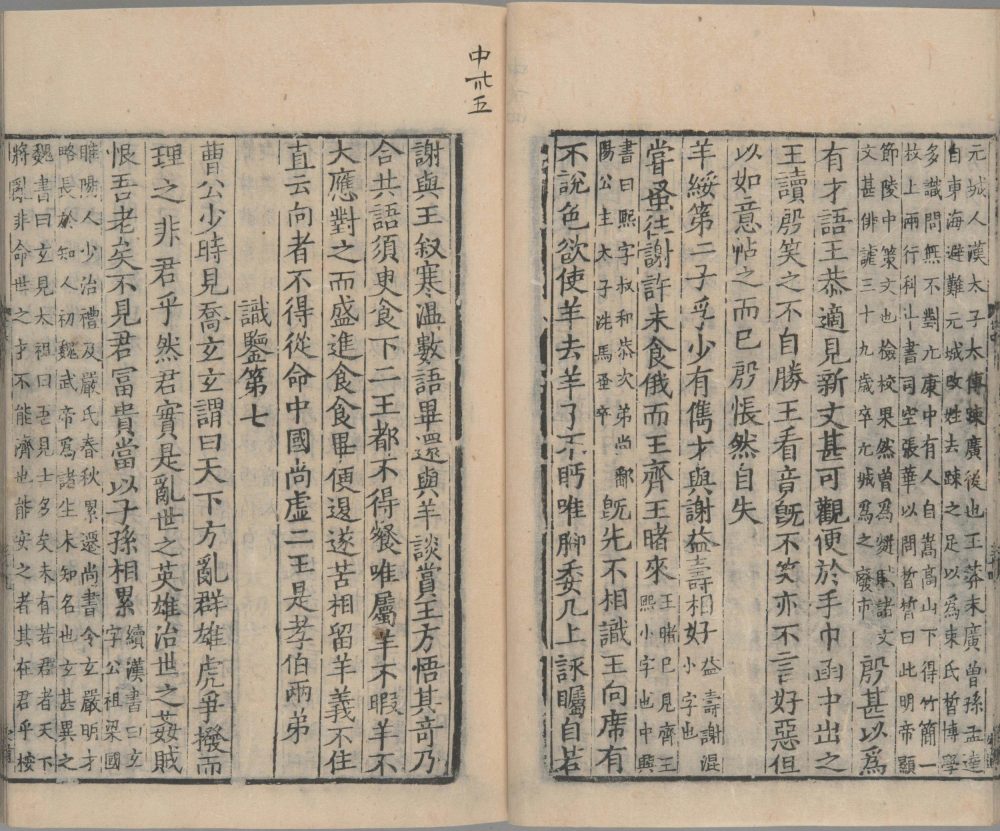 元城人漢太子太傅踈廣後也王莽末廣曽孫孟達
自東海避難元城改姓去踈之足以爲束氏晳博學
多識問無不對元康中有人自嵩高山下得竹簡一
枚上兩行科斗書司空張華以問晳晳曰此明帝顯
節陵中策文也檢校果然曽爲䴵賦諸文
文甚俳謔三十九歲卒元城爲之廢市
殷甚以爲
有才語王恭適見新文甚可觀便於手巾函中出之
王讀殷笑之不自勝王看竟旣不笑亦不言好惡但
以如意帖之而已殷悵然自失
羊綏第二子孚少有儁才與謝益壽相好
益壽謝混
小字也
嘗蚤往謝許未食俄而王齊王睹來
王睹已見齊王
熙小字也中興
書曰熙字叔和恭次弟尚鄱
陽公主太子洗馬蚤卒
旣先不相識王向席有
不説色欲使羊去羊了不眄唯脚委几上詠矚自若
中卅五
謝與王叙寒温數語畢還與羊談賞王方悟其竒乃
合共語須臾食下二王都不得餐唯屬羊不暇羊不
大應對之而盛進食食畢便退遂苦相留羊義不住
直云向者不得從命中國尚虚二王是孝伯兩弟
識鑒第七
曹公少時見喬玄玄謂曰天下方亂群雄虎爭撥而
理之非君乎然君實是亂世之英雄治世之姦賊
恨吾老矣不見君冨貴當以子孫相累
續漢書曰玄
字公祖梁國
睢陽人少治禮及嚴氏春秋累遷尚書令玄嚴明才
略長於知人初魏武帝爲諸生未知名也玄甚異之
魏書曰玄見太祖曰吾見士多矣未有若君者天下
將亂非命世之才不能濟也能安之者其在君乎桉